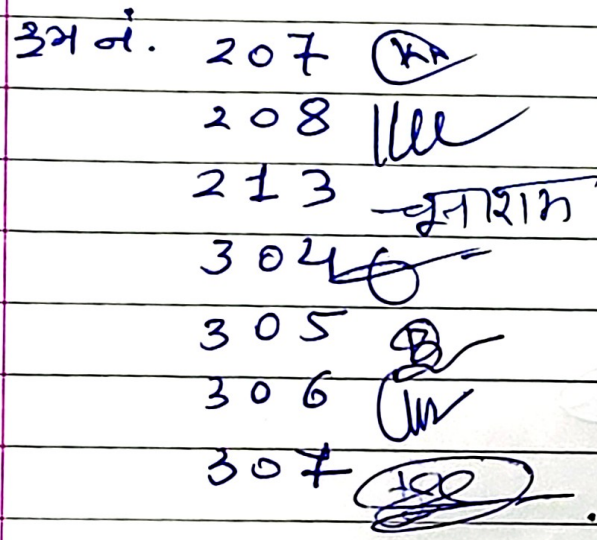 રૂમ નં. 207 KA
208
213 चूनाराम
304
305
306
307